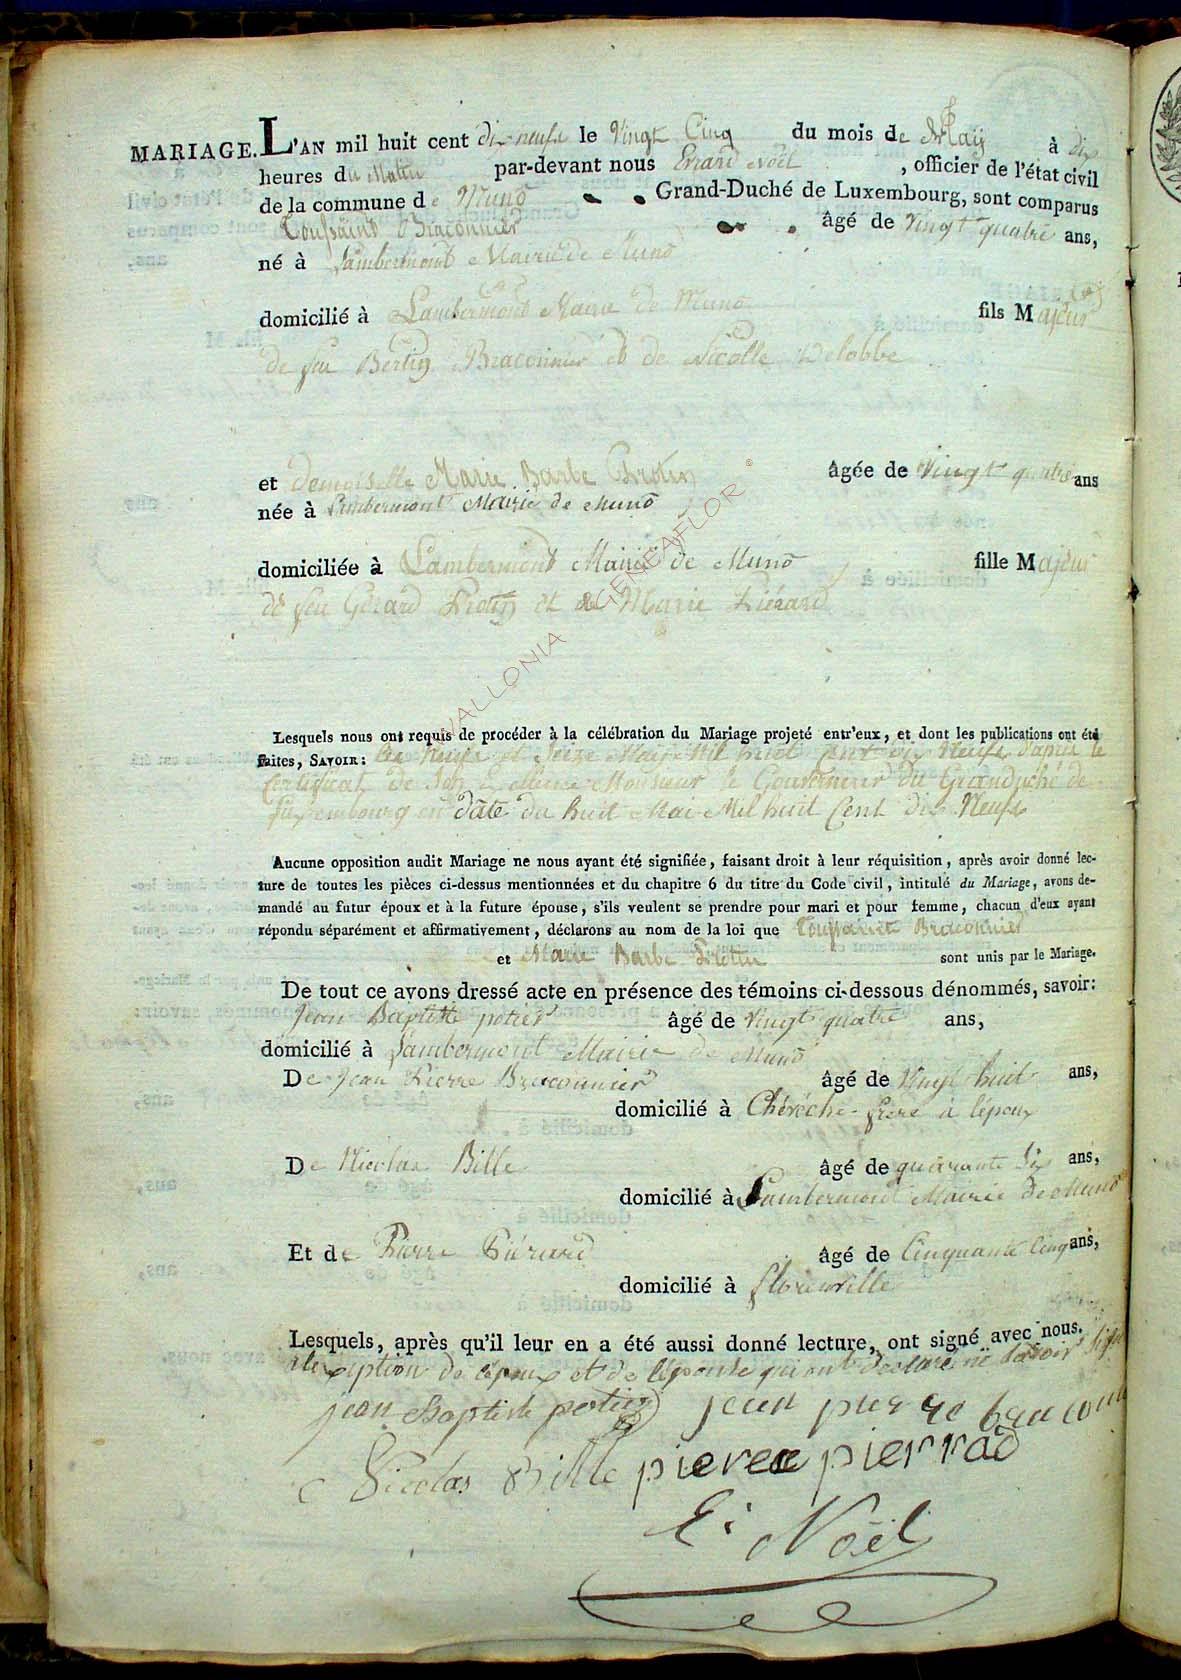 MARIAGE. L'AN mil huit cent dix neufs le Vingt Cinq du mois de May à dix
heures du Matin par-devant nous Erard Noël, officier de l'état civil
de la commune de Muno Grand-Duché de Luxembourg, sont comparus
Toussaint Braconnier âgé de Vingt quatre ans,
né à Lambermont Mairie de Muno
domicilié à Lambermont Mairie de Muno fils Majeur
de feu Bertin Braconnier et de Nicolle Delobbe
et demoiselle Marie Barbe Protin âgée de Vingt quatre ans
née à Lambermont Mairie de Muno
domiciliée à Lambermont Mairie de Muno fille Majeur
de feu Gérard Protin et de Marie Piérard
Lesquels nous ont requis de procéder à la célébration du Mariage projeté entr'eux, et dont les publications ont été
faites, SAVOIR: les Neufs et Seize Mai Mil huit Cent dix Neufs d'après le
Certificat de Son Excellence Monsieur le Gouverneur du Granduché de
Luxembourg en dâte du huit Mai Mil huit Cent dix Neufs
Aucune opposition audit Mariage ne nous ayant été signifiée, faisant droit à leur réquisition, après avoir donné lec-
ture de toutes les pièces ci-dessus mentionnées et du chapitre 6 du titre du Code civil, intitulé du Mariage, avons de-
mandé au futur époux et à la future épouse, s'ils veulent se prendre pour mari et pour femme, chacun d'eux ayant
répondu séparément et affirmativement, déclarons au nom de la loi que Toussaint Braconnier
et Marie Barbe Protin sont unis par le Mariage.
De tout ce avons dressé acte en présence des témoins ci-dessous dénommés, savoir:
Jean Baptiste potier âgé de Vingt quatre ans,
domicilié à Lambermont Mairie de Muno
De Jean Pierre Braconnier âgé de Vingt huit ans,
domicilié à Chérêche frere à lépoux
De Nicolas Bille âgé de quarante Six ans,
domicilié à Lambermont Mairie de Muno
Et de Pierre Piérard âgé de Cinquante Cinq ans,
domicilié à florenville
Lesquels, après qu'il leur en a été aussi donné lecture, ont signé avec nous.
à lexeption de lépoux et de lépouse qui ont declaré ne Savoir Signé
jean Baptiste potier jean pierre braconnie
Nicolas Bille piere pierrad
E: Noël
WALLONIA GENEAFLOR ©